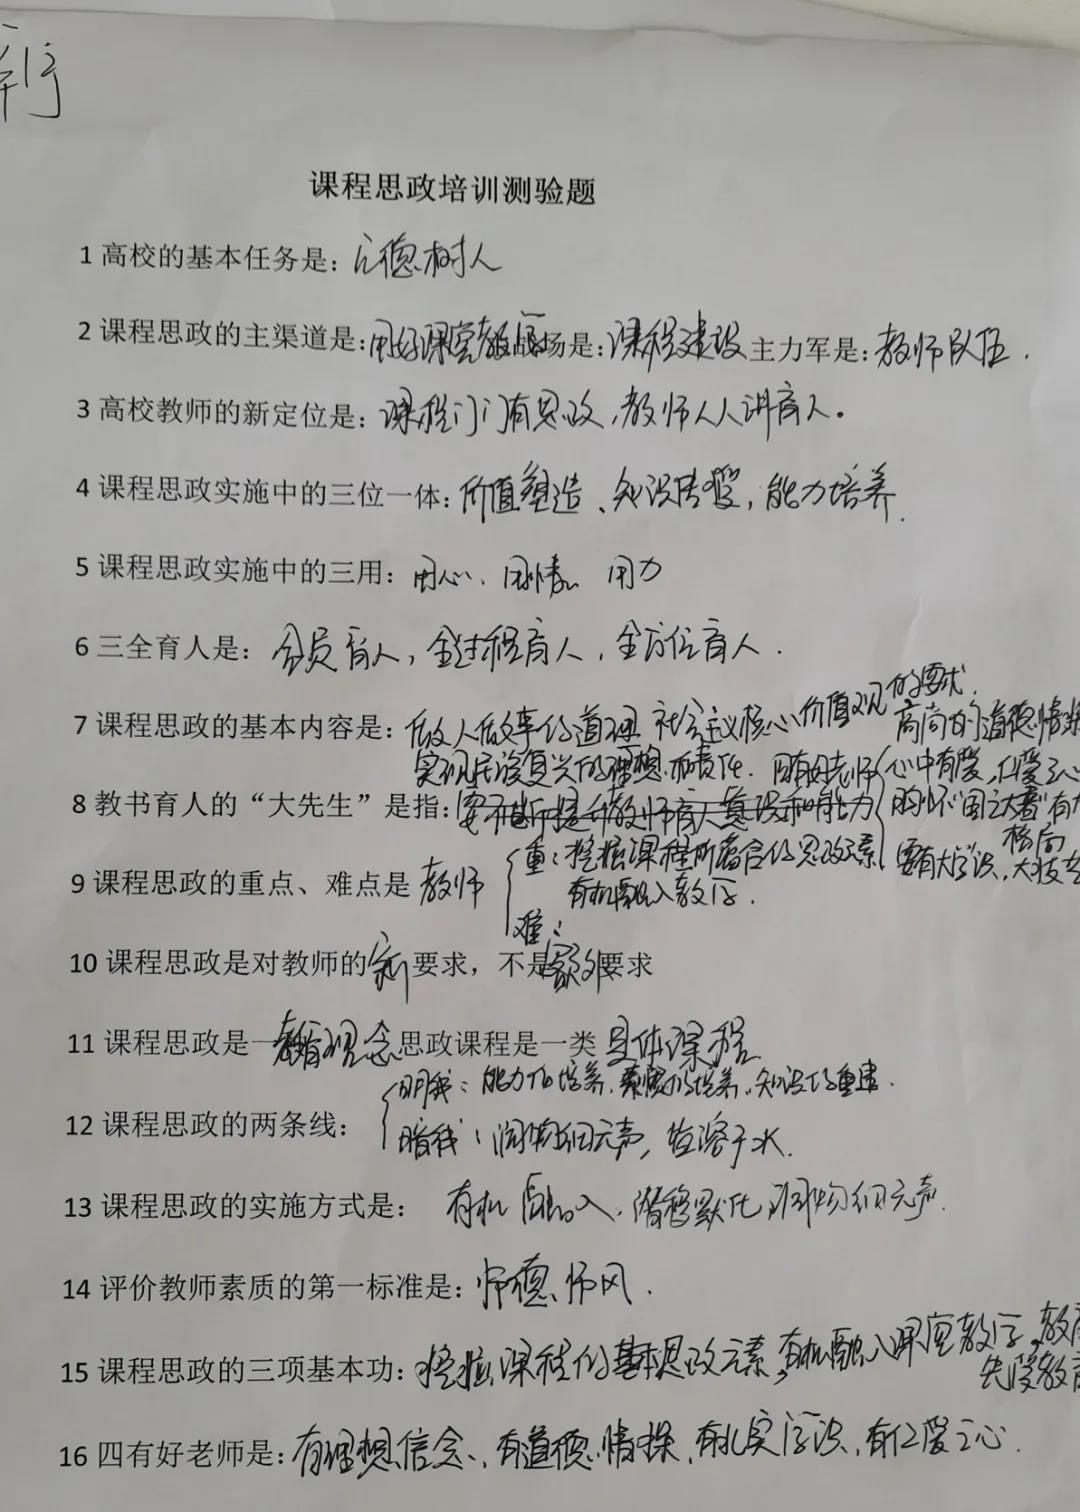 课程思政培训测验题
1 高校的基本任务是：立德树人
2 课程思政的主渠道是：用好课堂教学 战场是：课程建设 主力军是：教师队伍.
3 高校教师的新定位是：课程门门有思政，教师人人讲育人。
4 课程思政实施中的三位一体：价值塑造、知识传授，能力培养.
5 课程思政实施中的三用：用心、用情、用力
6 三全育人是：全员育人，全过程育人，全方位育人.
7 课程思政的基本内容是：做人做事的道理 社会主义核心价值观的要求.
实现民族复兴的理想和责任.
8 教书育人的“大先生”是指：要不断提升教师育人意识和能力
四有好老师 高尚的道德情操
心中有爱，仁爱之心
胸怀“国之大者”有大格局
要有大学识，大
9 课程思政的重点、难点是 教师
重：挖掘课程所蕴合的思政元素
有机融入教学.
难：
10 课程思政是对教师的新要求，不是额外要求
11 课程思政是一教育理念 思政课程是一类 具体课程
12 课程思政的两条线：
明线：能力的培养、素质的培养、知识的重建.
暗线：润物细无声，盐溶于水.
13 课程思政的实施方式是： 有机融入、潜移默化 润物细无声.
14 评价教师素质的第一标准是：师德、师风.
15 课程思政的三项基本功：挖掘课程的基本思政元素，有机融入课堂教学，教育
先受教育
16 四有好老师是：有理想信念、有道德情操，有扎实学识，有仁爱之心.